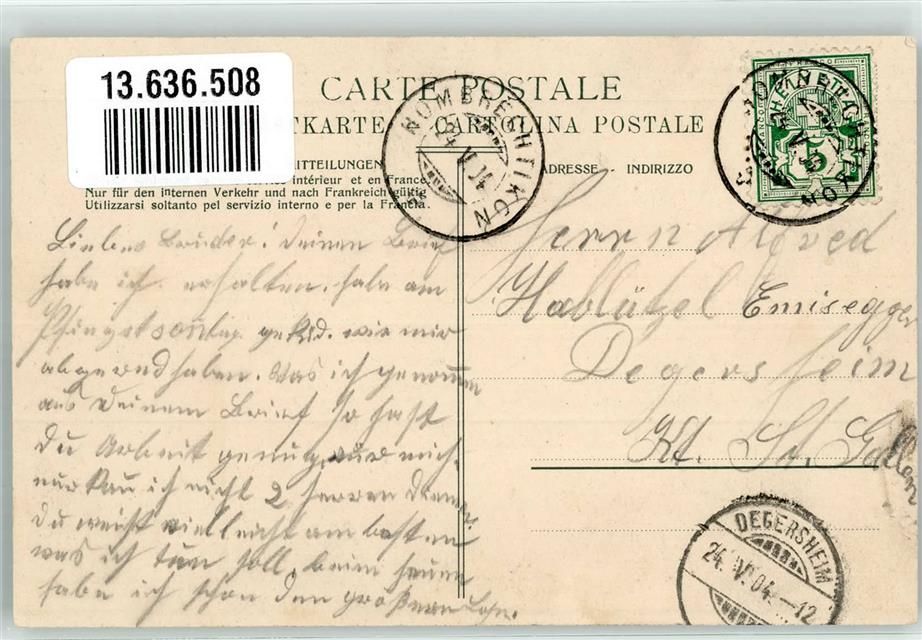 13.636.508
CARTE POSTALE
TKARTE CARTOLINA POSTALE
ITTEILUNGEN
ADRESSE - INDIRIZZO
intérieur et en France.
Nur für den internen Verkehr und nach Frankreich gültig
Utilizzarsi soltanto pel servizio interno e per la Francia.
HOMBRECHTIKON
24 V 04
5
Herrn Alfred
Hablützel Emisegger
Degersheim
Kt. St. Gallen
DEGERSHEIM
24. V. 04. -12
Liebes Bruder! Deinen Brief
habe ich erhalten. habe am
Pfingstsonntag
abgeredt haben. Was ich genommen
aus Deinem Brief so hast
Du Arbeit genug, nur mich
nur kan ich nicht 2 Herren dienen
Du weist vielleicht am besten
was ich tun soll, beim
habe ich schon den größeren Lohn.